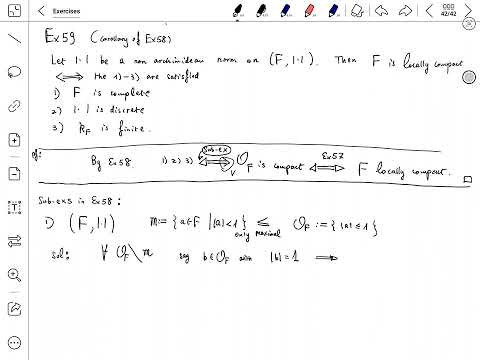 Exercises
42/42
Ex59 (corollary of Ex58)
Let |·| be a non archimedean norm on (F, |·|). Then F is locally compact
⟺ the 1)-3) are satisfied
1) F is complete
2) |·| is discrete
3) k_F is finite.
pf: By Ex58. 1) 2) 3) ⟺ O_F is compact ⟺ F locally compact. □
Sub-ex
Ex57
Sub-exs in Ex58:
1) (F, |·|) m := {a∈F | |a|<1} ≤ O_F := {|a| ≤ 1}
only maximal
Sol: ∀ O_F \ m say b∈O_F with |b| = 1 ⟹